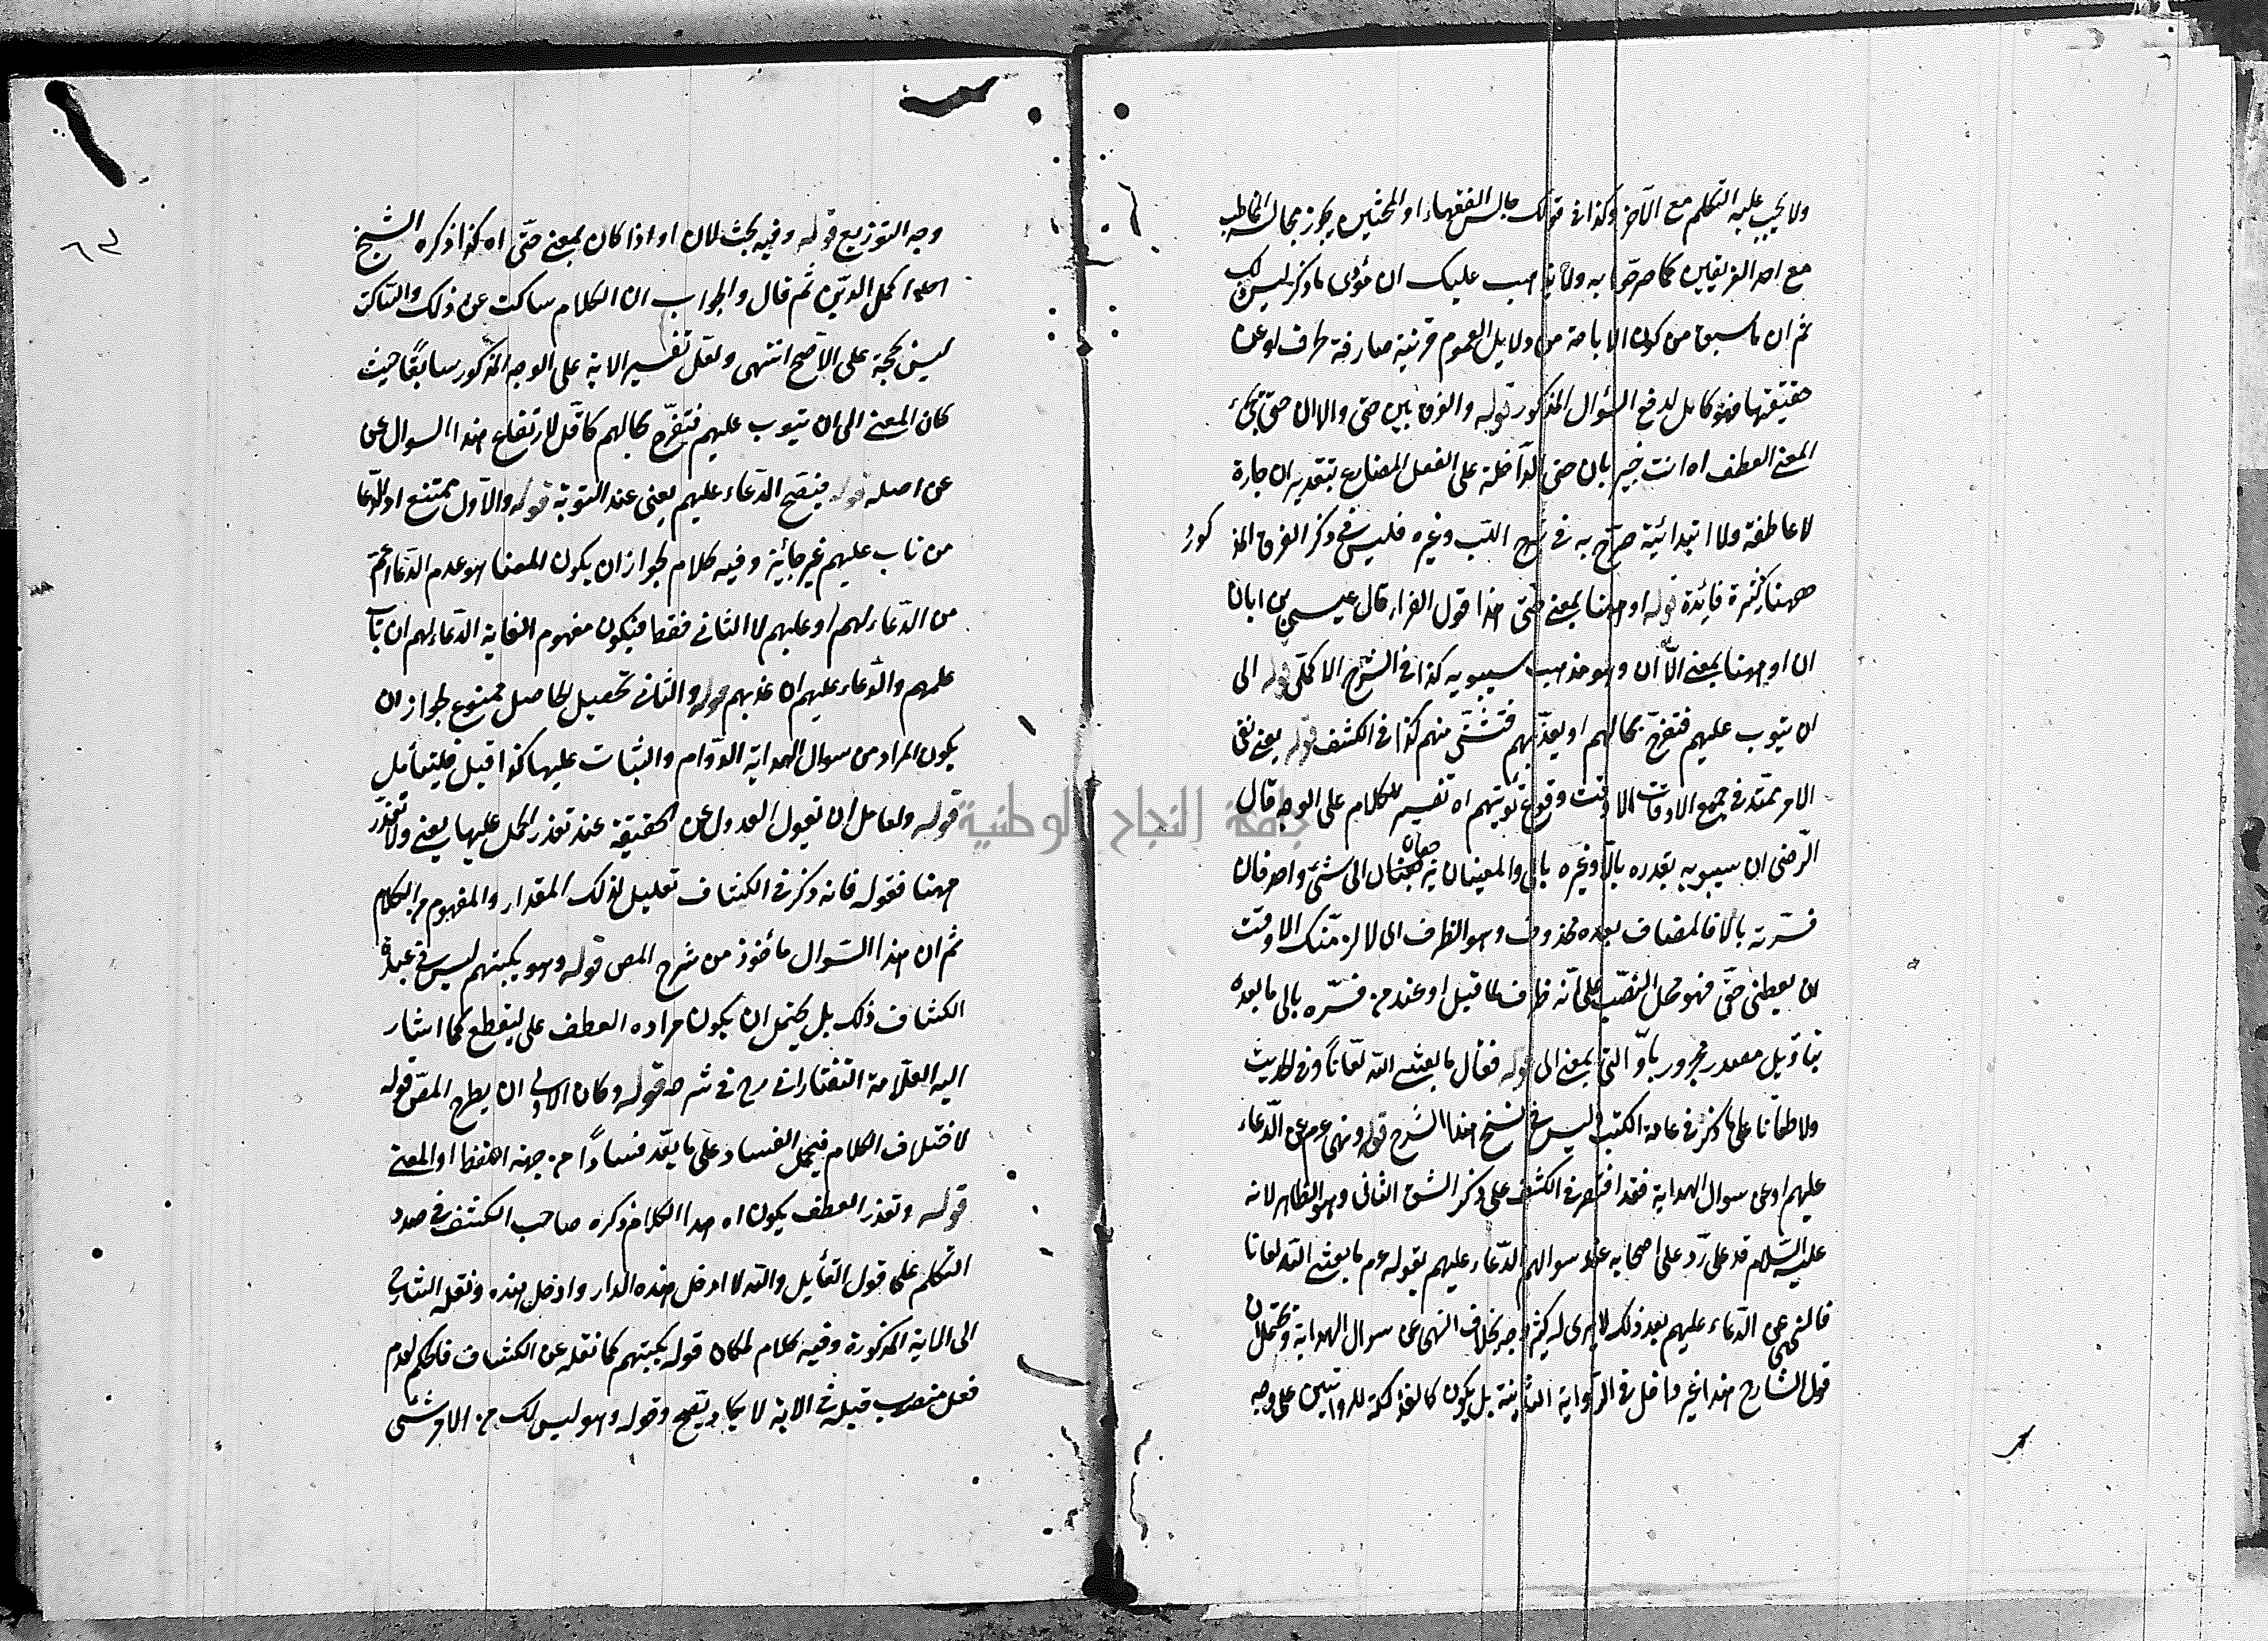 ولا يجب عليه التكلم مع الآخر وكذا في قولك جالس الفقهاء او المحدثين يجوز مجالسة المخاطب
مع احد الفريقين كما صرحوا به ولا يذهب عليك ان مؤدى ما ذكر ليس ذلك
ثم ان ما سبق من كون الاباحة من دلايل العموم قرينة صارفة حرف او عن
حقيقتها فهو كامل لدفع السؤال المذكور قوله والفرق بين حتى والا ان حتى تجئ
لمعنى العطف اه انت خبير بان حتى الداخلة على الفعل المضارع بتقدير ان جارة
لا عاطفة ولا ابتدائية صرح به في شرح اللب وغيره فليس في ذكر الفرق المذكور
ههنا كثرة فائدة قوله او ههنا بمعنى حتى هذا قول الفراء قال عيسى بن ابان
ان او ههنا بمعنى الا ان وهو مذهب سيبويه كذا في الشرح الاكملي قوله الى
ان يتوب عليهم فتفرح بحالهم او يعذبهم فتتشفى منهم كذا في الكشف قوله يعني نفى
الامر ممتد في جميع الاوقات الا وقت وقوع توبتهم اه تفسير للكلام على الوجه قال
الرضى ان سيبويه يقدره بالا وغيره بالى والمعنيان يرجعان الى شئ واحد فان
فسرته بالا فالمضاف بعده محذوف وهو الظرف اى لا لزمنك الا وقت
ان يعطيني حقي فهو محل النصب على انه ظرف لما قبل او عند من فسره بالى ما بعده
بتأويل مصدر مجرور باو التي بمعنى الى قوله فقال ما بعثني الله لعانا وفي الحديث
ولا طعانا على ما ذكر في عامة الكتب وليس في نسخ هذا الشرح قوله ونهى عم عن الدعاء
عليهم او عن سوال الهداية فقد اقتصر في الكشف على ذكر الشق الثاني وهو الظاهر لانه
عليه السلام قد على رد على اصحابه عند سوالهم الدعاء عليهم بقوله عم ما بعثني الله لعانا
فالنهى عن الدعاء عليهم بعد ذلك لا يرى له كثير وجه بخلاف النهى عن سوال الهداية ويحتمل ان
قول الشارح هذا غير داخل في الرواية الثانية بل يكون كالفذلكة للروايتين على وجه
وجه التوزيع قوله وفيه بحث لان او اذا كان بمعنى حتى اه كذا ذكره الشيخ
اكمل الدين ثم قال والجواب ان الكلام ساكت عن ذلك والساكت
ليس بحجة على الاصح انتهى ولعل تفسير الاية على الوجه المذكور سابقا حيث
كان المعنى الى ان يتوب عليهم فتفرح بحالهم كاف لارتفاع هذا السوال عن
عن اصله قوله فيتضح الدعاء عليهم يعني عند التوبة قوله والاول ممتنع او الدعا
من تاب عليهم غير جائز وفيه كلام لجواز ان يكون المغيا هو عدم الدعا اعم
من الدعاء لهم او عليهم لا الثاني فقط فيكون مفهوم الغاية الدعاء لهم ان تاب
عليهم والدعاء عليهم ان عذبهم قوله والثاني تحصيل الحاصل ممنوع لجواز ان
يكون المراد من سوال الهداية الدوام والثبات عليها كذا قيل فليتأمل
قوله ولعامل ان نقول العدول عن الحقيقة عند تعذر الحمل عليها يعني ولا تعذر
ههنا فقوله فانه ذكر في الكشاف تعليل لذلك المقدار والمفهوم من الكلام
ثم ان هذا السوال مأخوذ من شرح المص قوله وهو يكبتهم ليس في عبارة
الكشاف ذلك بل يحتمل ان يكون مراده العطف على ليقطع كما اشار
اليه العلامة التفتازاني رح في شرحه قوله وكان الاولى ان يطرح المص قوله
لاختلاف الكلام فيحمل الفساد على ما يعد فسادا من جهة اللفظ او المعنى
قوله وتعذر العطف يكون اه هذا الكلام ذكره صاحب الكشف في صدد
التكلم على قول القايل والله لا ادخل هذه الدار وادخل هذه ونقله الشارح
الى الاية المذكورة وفيه كلام لمكان قوله يكبتهم كما نقله عن الكشاف فالحكم لعدم
فعل منصوب قبله في الاية لا يكاد يصح وقوله وهو ليس لك من الامر شئ
جامعة النجاح الوطنية